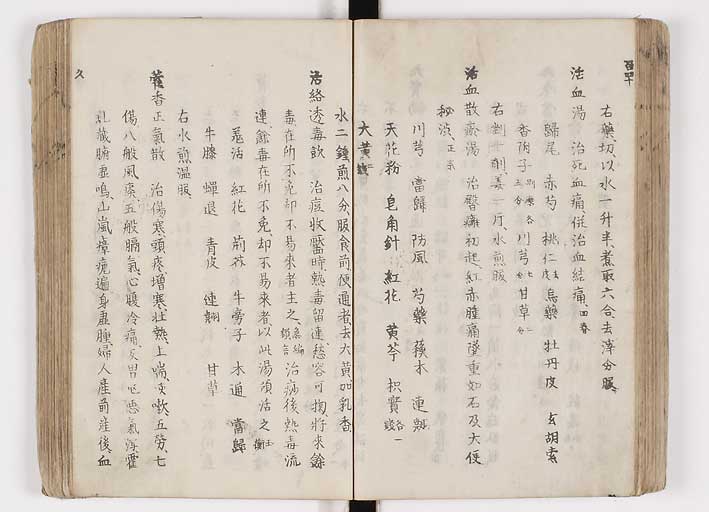 右藥切以水一升半煮取六合去滓分服
活血湯 治死血痛従治血結痛 回春
歸尾 赤芍 桃仁 烏藥 牡丹皮 玄胡索
香附子 川芎 甘草
右剉一剤姜一片水煎服
活血散瘀湯 治臀癰初起紅赤腫痛墜重如石及大便
秘渋 正宗
川芎 當歸 防風 芍藥 蘇木 連翹
天花粉 皂角針 紅花 黄芩 枳實 各一
大黄
水二鍾煎八分服食前便通者去大黄加乳香
活絡透毒飲 治痘收靨時熱毒留連愁容可掬将來餘
毒在所不免却不易來者主之 治痘後熱毒流
連餘毒在所不免却不易來者以此湯預活之
羗活 紅花 荊芥 牛旁子 木通 當歸
牛膝 蟬退 青皮 連翹 甘草
右水煎温服
藿香正氣散 治傷寒頭疼増寒壮熱上喘咳嗽五労七
傷八般風痰五般膈氣心腹冷痛反胃嘔悪氣瀉霍
乱蔵腑虚鳴山嵐瘴瘧遍身虚腫婦人産前産後血
久